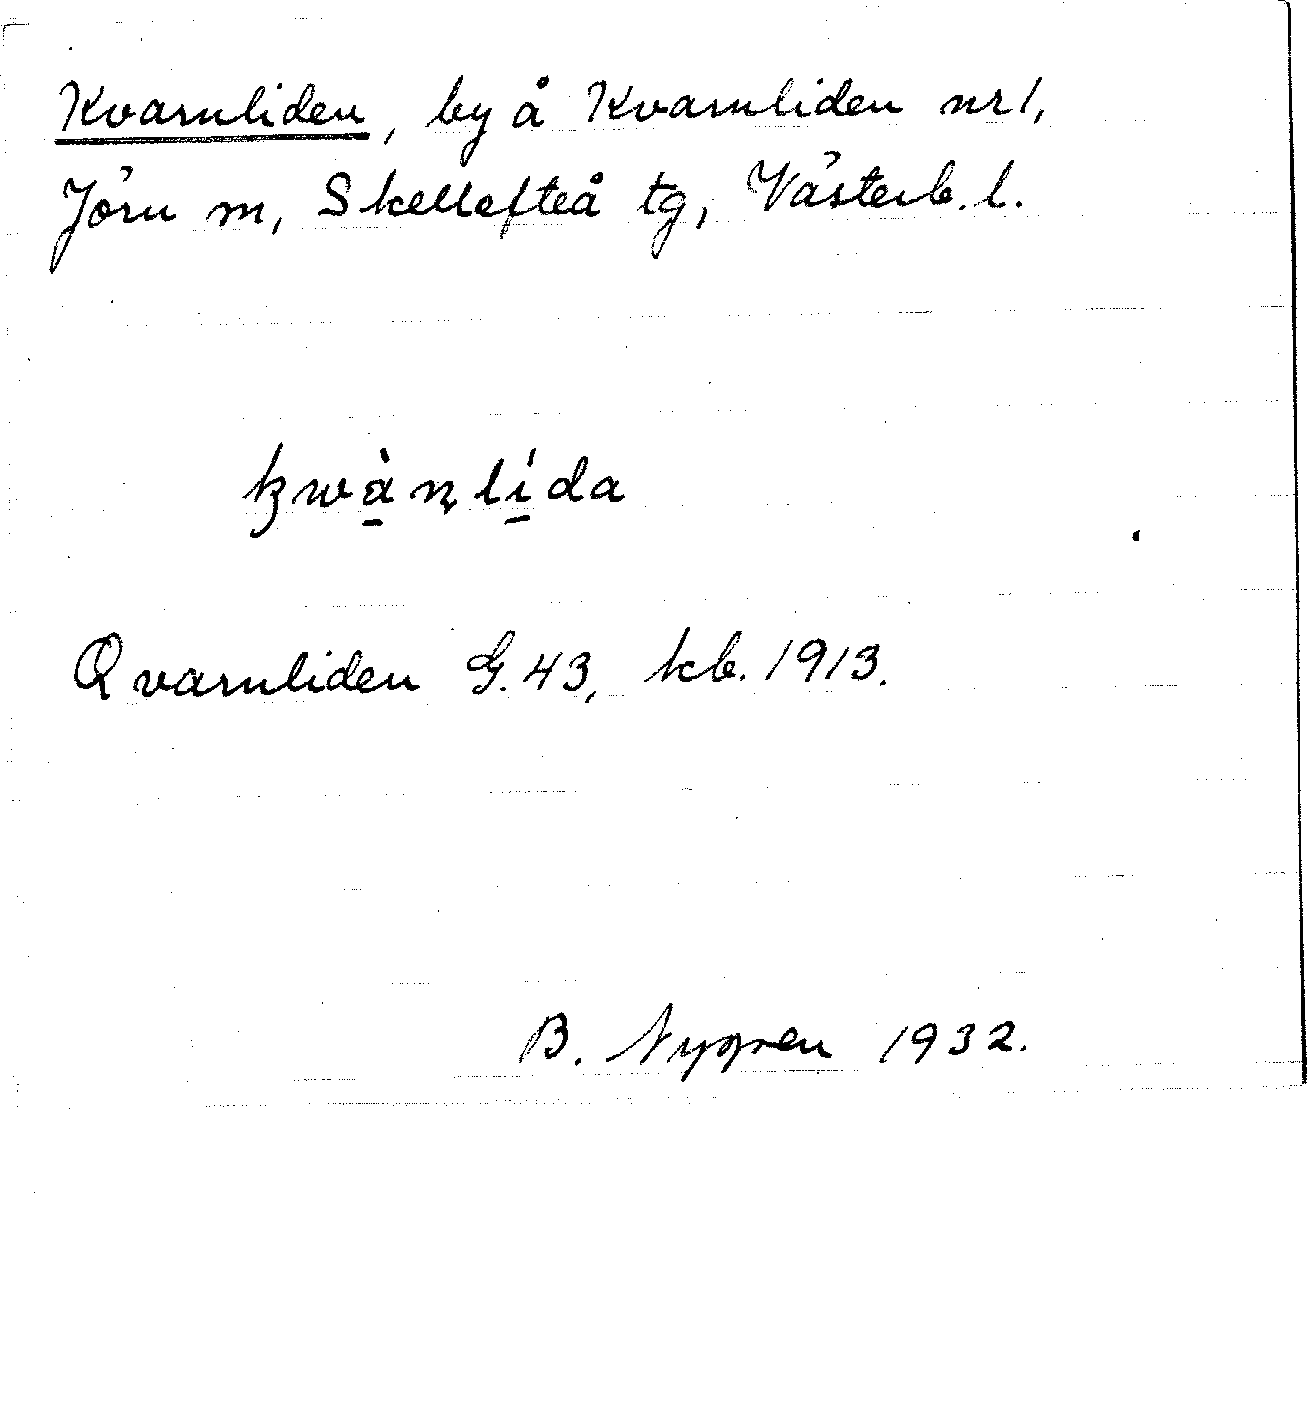 Kvarnliden, by å Kvarnliden nr 1,
Jörn m, Skellefteå tg, Västerb. l.
kwà̱ṇlí̱da
Qvarnliden G. 43, kb. 1913.
B. Nygren 1932.